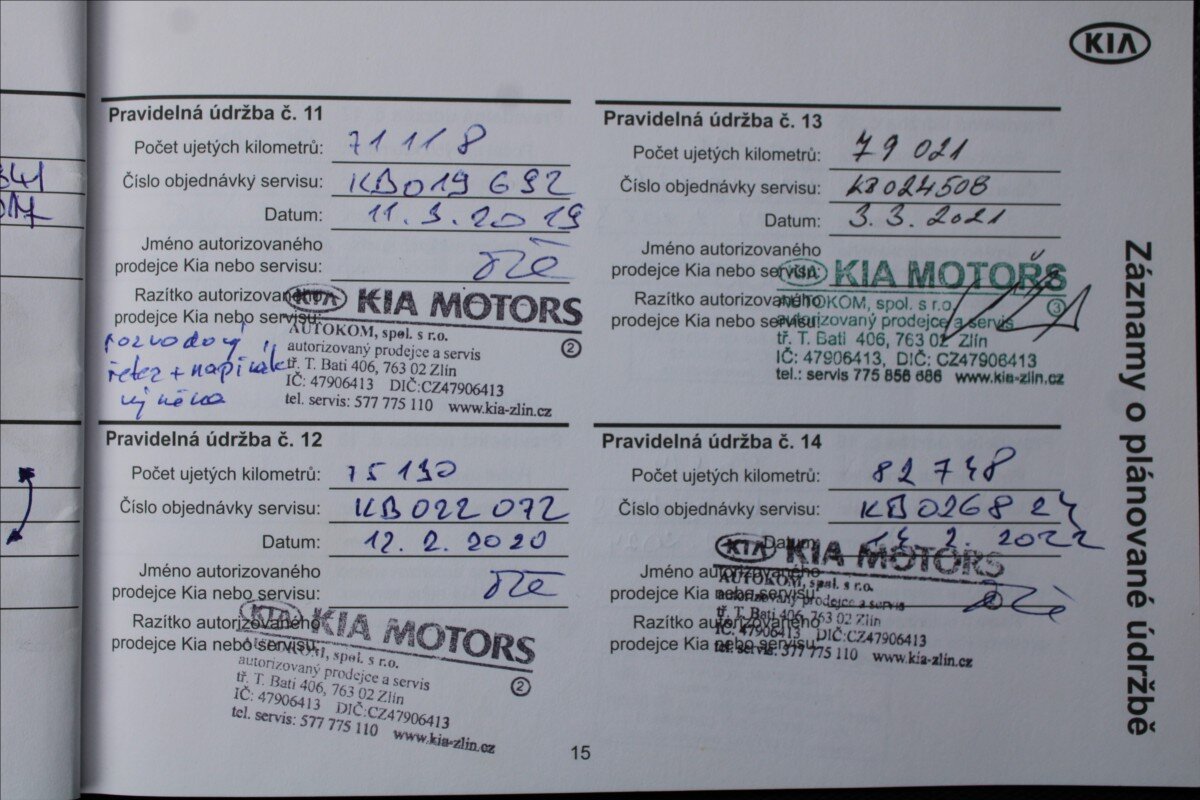 KIA
Pravidelná údržba č. 11
Počet ujetých kilometrů: 71 118
Číslo objednávky servisu: KB019 692
Datum: 11. 3. 2019
Jméno autorizovaného
prodejce Kia nebo servisu:
Razítko autorizovaného
prodejce Kia nebo servisu:
KIA KIA MOTORS
AUTOKOM, spol. s r.o.
autorizovaný prodejce a servis
2
tř. T. Bati 406, 763 02 Zlín
IČ: 47906413 DIČ:CZ47906413
tel. servis: 577 775 110 www.kia-zlin.cz
rozvodový
řetěz + napínák
výměna
Pravidelná údržba č. 12
Počet ujetých kilometrů: 75 190
Číslo objednávky servisu: KB022 072
Datum: 12. 2. 2020
Jméno autorizovaného
prodejce Kia nebo servisu:
Razítko autorizovaného
prodejce Kia nebo servisu:
KIA KIA MOTORS
AUTOKOM, spol. s r.o.
autorizovaný prodejce a servis
2
tř. T. Bati 406, 763 02 Zlín
IČ: 47906413 DIČ:CZ47906413
tel. servis: 577 775 110 www.kia-zlin.cz
Pravidelná údržba č. 13
Počet ujetých kilometrů: 79 021
Číslo objednávky servisu: KB024508
Datum: 3. 3. 2021
Jméno autorizovaného
prodejce Kia nebo servisu:
Razítko autorizovaného
prodejce Kia nebo servisu:
KIA KIA MOTORS
AUTOKOM, spol. s r.o.
3
autorizovaný prodejce a servis
tř. T. Bati 406, 763 02 Zlín
IČ: 47906413, DIČ: CZ47906413
tel.: servis 775 856 686 www.kia-zlin.cz
Pravidelná údržba č. 14
Počet ujetých kilometrů: 82 748
Číslo objednávky servisu: KB0268 24
Datum: 2. 2022
Jméno autorizovaného
prodejce Kia nebo servisu:
Razítko autorizovaného
prodejce Kia nebo servisu:
KIA KIA MOTORS
AUTOKOM, spol. s r.o.
autorizovaný prodejce a servis
tř. T. Bati 406, 763 02 Zlín
IČ: 47906413 DIČ:CZ47906413
tel. servis: 577 775 110 www.kia-zlin.cz
Záznamy o plánované údržbě
15